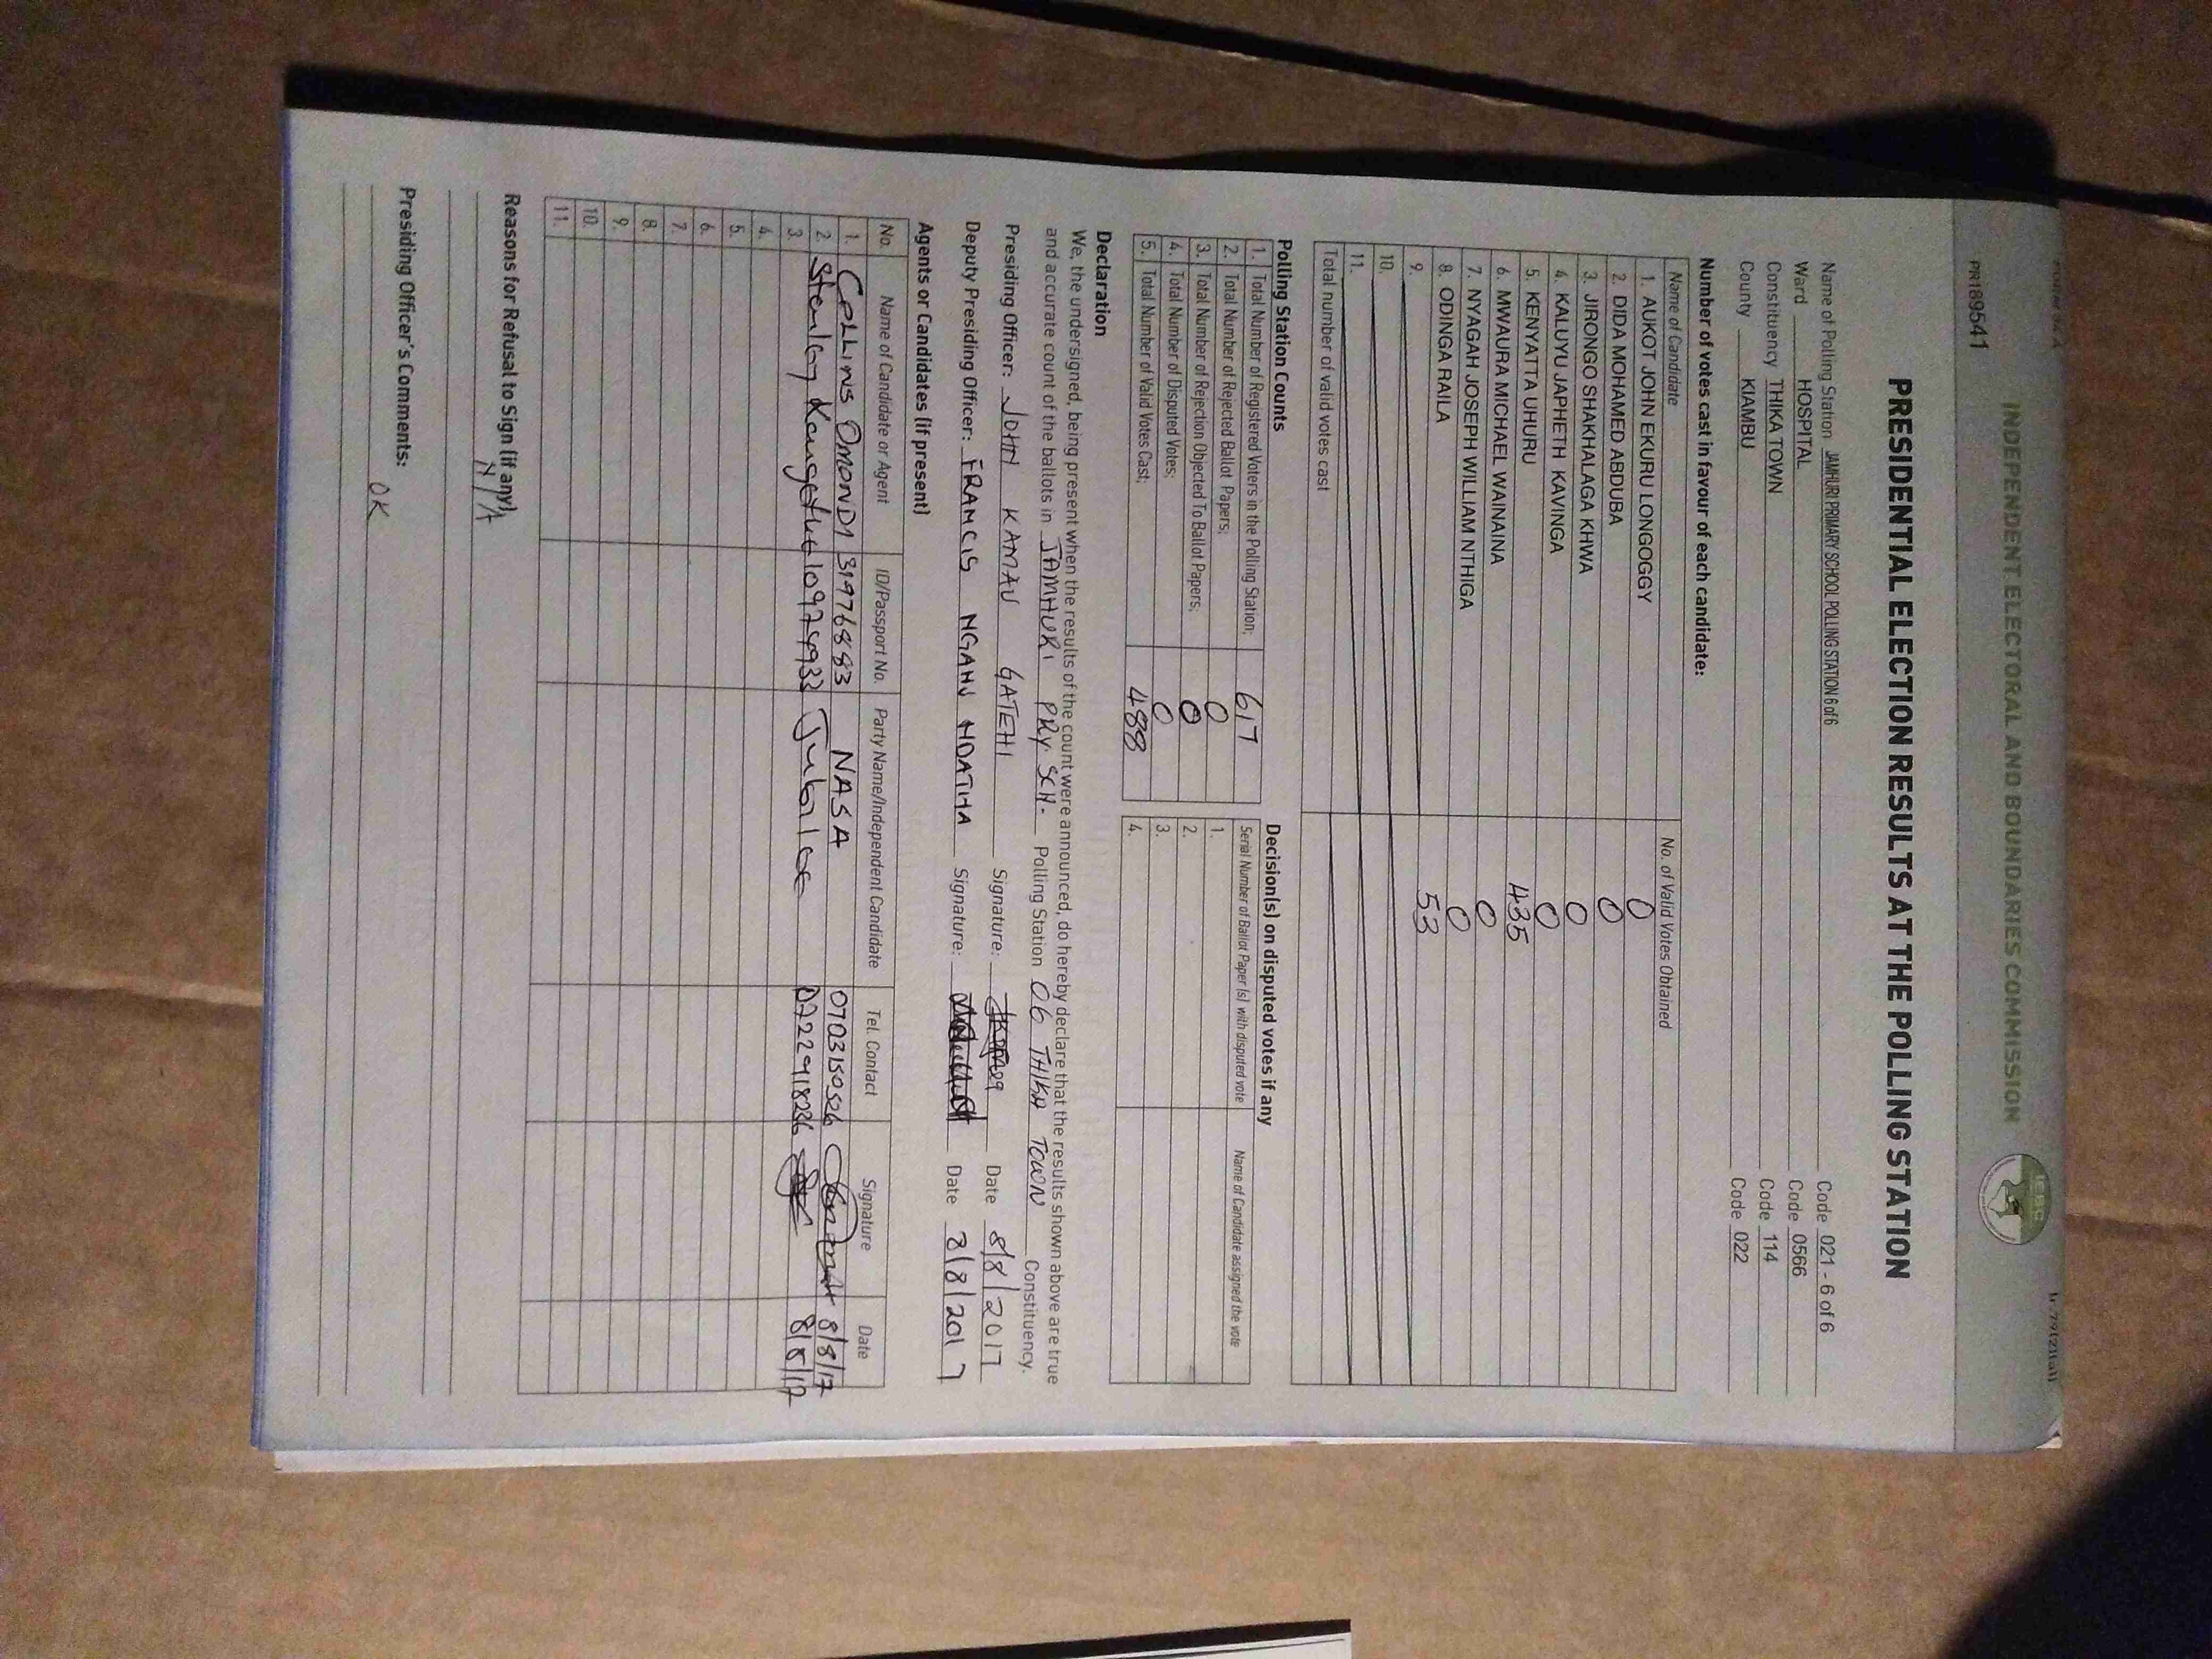 INDEPENDENT ELECTORAL AND BOUNDARIES COMMISSION
PR189541
PRESIDENTIAL ELECTION RESULTS AT THE POLLING STATION
Name of Polling Station JAMHURI PRIMARY SCHOOL POLLING STATION 6 of 6 Code 021 - 6 of 6
Ward HOSPITAL Code 0566
Constituency THIKA TOWN Code 114
County KIAMBU Code 022
Number of votes cast in favour of each candidate:
Name of Candidate No. of Valid Votes Obtained
1. AUKOT JOHN EKURU LONGOGGY 0
2. DIDA MOHAMED ABDUBA 0
3. JIRONGO SHAKHALAGA KHWA 0
4. KALUYU JAPHETH KAVINGA 0
5. KENYATTA UHURU 435
6. MWAURA MICHAEL WAINAINA 0
7. NYAGAH JOSEPH WILLIAM NTHIGA 0
8. ODINGA RAILA 53
9.
10.
11.
Total number of valid votes cast
Polling Station Counts
1. Total Number of Registered Voters in the Polling Station; 617
2. Total Number of Rejected Ballot Papers; 0
3. Total Number of Rejection Objected To Ballot Papers; 0
4. Total Number of Disputed Votes; 0
5. Total Number of Valid Votes Cast; 488
Decision(s) on disputed votes if any
Serial Number of Ballot Paper (s) with disputed vote Name of Candidate assigned the vote
1.
2.
3.
4.
Declaration
We, the undersigned, being present when the results of the count were announced, do hereby declare that the results shown above are true
and accurate count of the ballots in JAMHURI PRY SCH. Polling Station 06 THIKA TOWN Constituency.
Presiding Officer: JOHN KAMAU GATEHI Signature: Date 8/8/2017
Deputy Presiding Officer: FRANCIS NGANU NDATHA Signature: Date 8/8/2017
Agents or Candidates (if present)
No. Name of Candidate or Agent ID/Passport No. Party Name/Independent Candidate Tel. Contact Signature Date
1. COLLINS OMONDI 31976883 NASA 0703150526 8/8/17
2. Stanley Jubilee 0722918286 8/8/17
3.
4.
5.
6.
7.
8.
9.
10.
11.
Reasons for Refusal to Sign (if any)
N/A
Presiding Officer's Comments:
OK